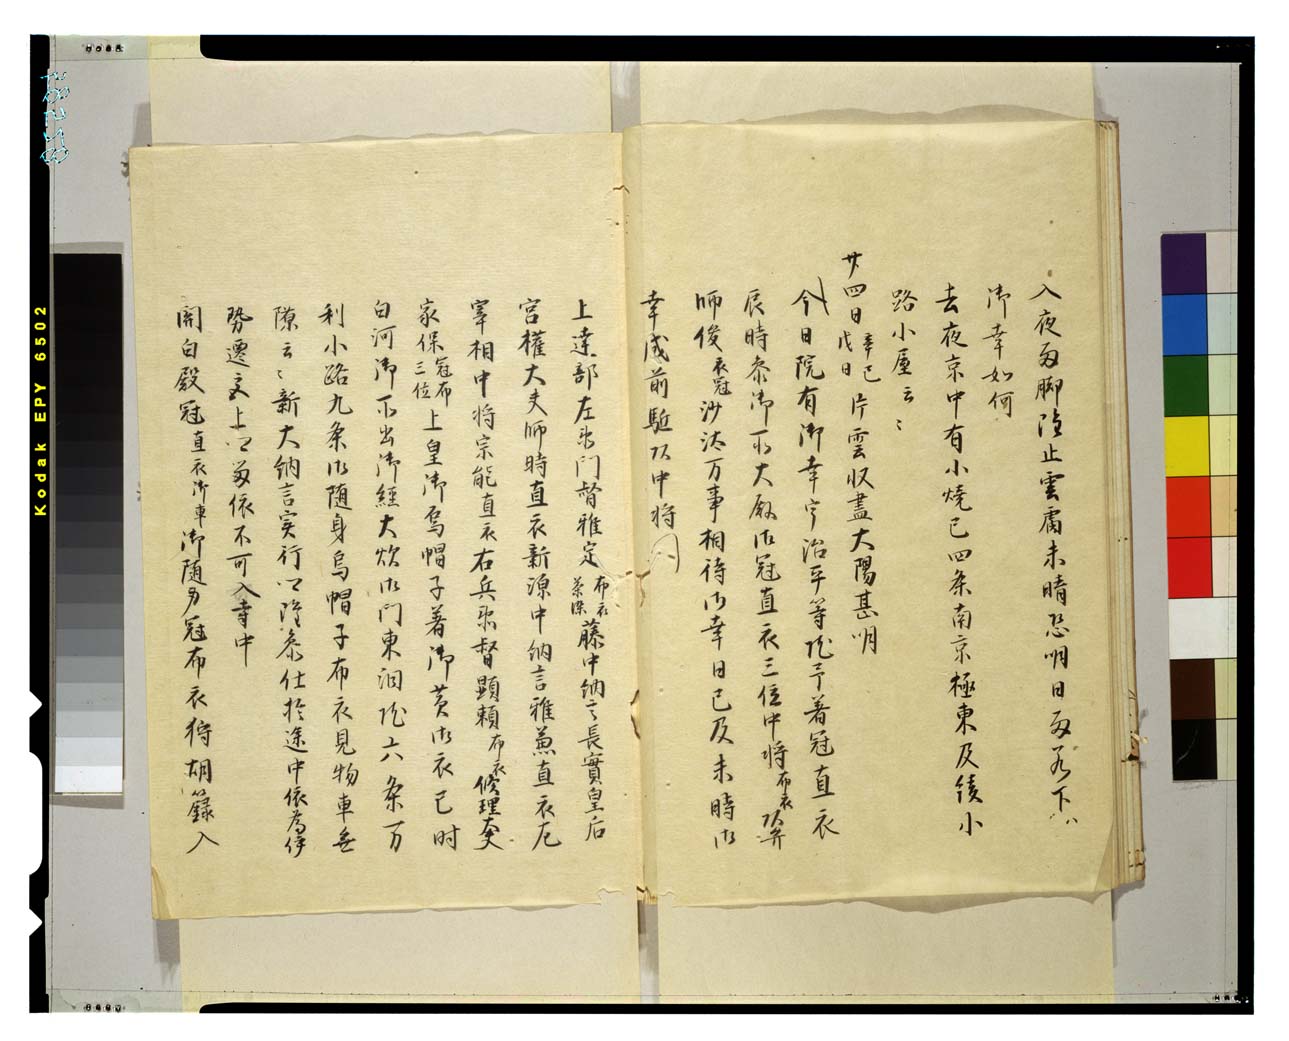 入夜雨脚随止雲膚未晴恐明日雨若下
御幸如何
去夜京中有小焼亡四条南京極東及綾小
路小屋云々
廿四日辛巳戊日片雲収盡大陽甚明
今日院有御幸宇治平等院予著冠直衣
辰時参御所大殿御冠直衣三位中将布衣頭弁
師俊衣冠沙汰万事相待御幸日已及未時御
幸成前駈頭中将
上達部左衛門督雅定布衣藤中納言長實皇后
宮權大夫師時直衣新源中納言雅兼直衣左
宰相中将宗能直衣右兵衛督顕頼布衣修理大夫
家保冠布三位上皇御烏帽子著御黄御衣已時
白河御所出御經大炊御門東洞院六条万
利小路九条御随身烏帽子布衣見物車無
隙云々新大納言実行卿雖参仕於途中依為伊
勢遷宮上卿奉依不可入寺中
関白殿冠直衣御車御随身冠布衣狩胡籙入
Kodak EPY 6502